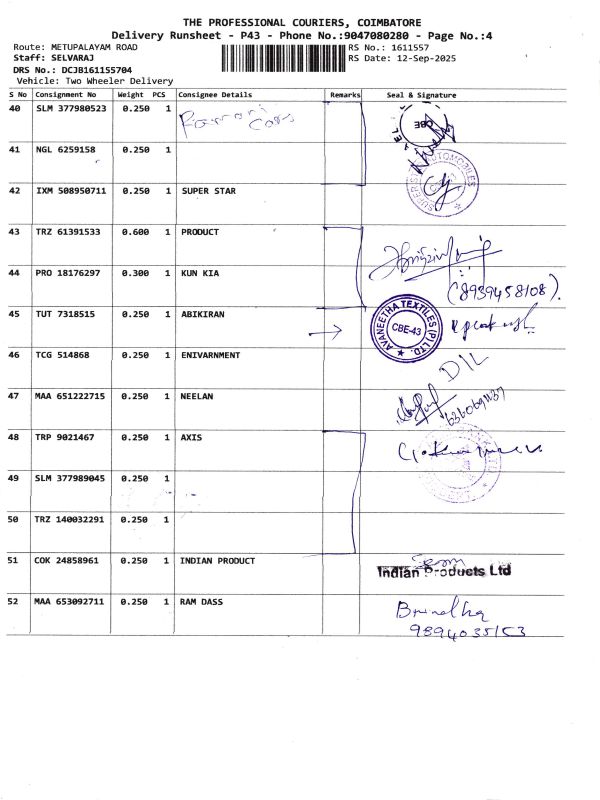 THE PROFESSIONAL COURIERS, COIMBATORE
Delivery Runsheet - P43 - Phone No.:9047080280 - Page No.:4
Route: METUPALAYAM ROAD RS No.: 1611557
Staff: SELVARAJ RS Date: 12-Sep-2025
DRS No.: DCJB161155704
Vehicle: Two Wheeler Delivery
S No Consignment No Weight PCS Consignee Details Remarks Seal & Signature
40 SLM 377980523 0.250 1 CBE
41 NGL 6259158 0.250 1
42 IXM 508950711 0.250 1 SUPER STAR
43 TRZ 61391533 0.600 1 PRODUCT
44 PRO 18176297 0.300 1 KUN KIA (8939458108).
45 TUT 7318515 0.250 1 ABIKIRAN AVANEETHA TEXTILES (P) LTD. CBE-43
46 TCG 514868 0.250 1 ENIVARNMENT D/L
47 MAA 651222715 0.250 1 NEELAN
48 TRP 9021467 0.250 1 AXIS
49 SLM 377989045 0.250 1
50 TRZ 140032291 0.250 1
51 COK 24858961 0.250 1 INDIAN PRODUCT Indian Products Ltd
52 MAA 653092711 0.250 1 RAM DASS